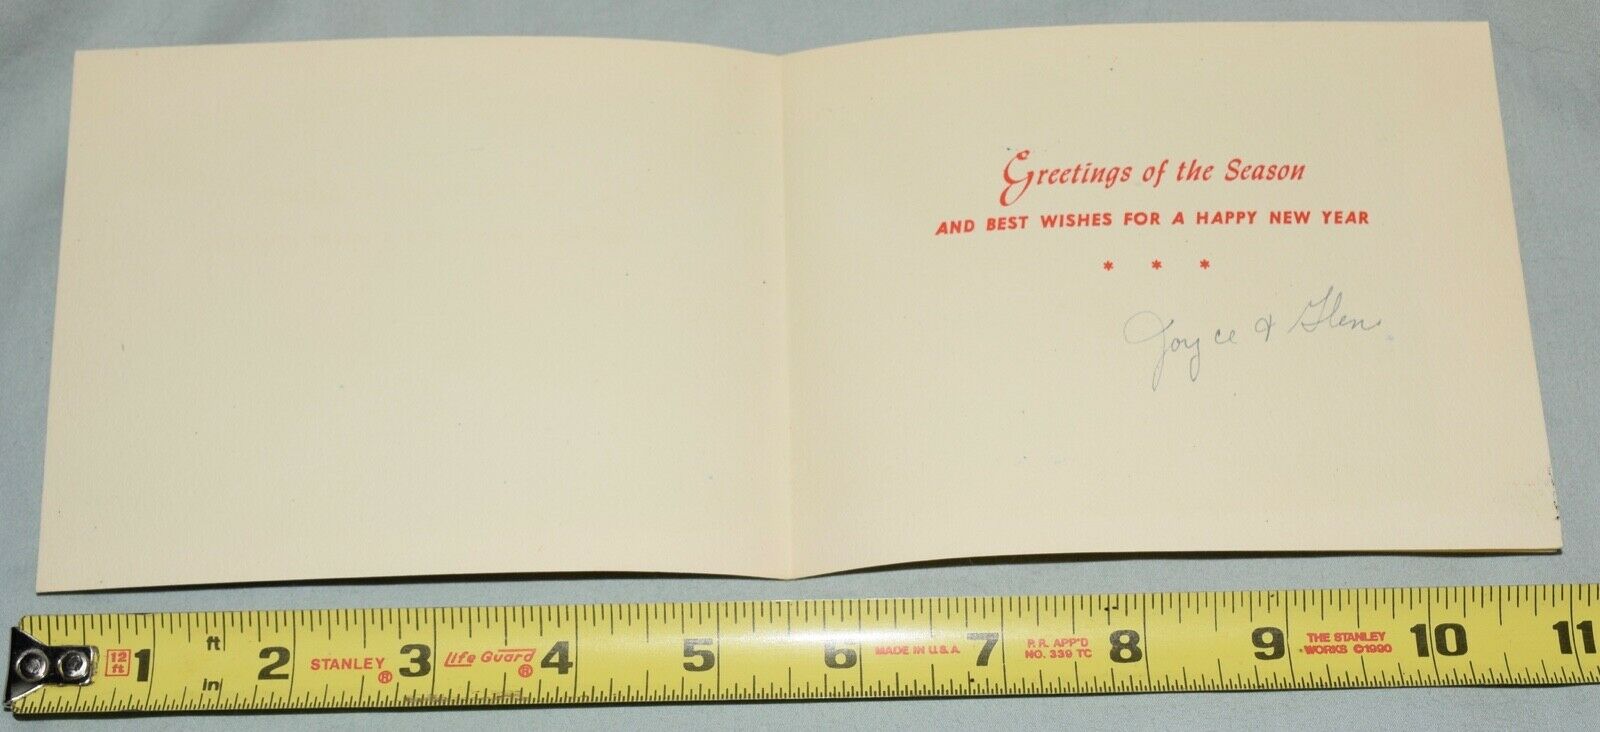 Greetings of the Season
AND BEST WISHES FOR A HAPPY NEW YEAR
* * *
Joyce & Glen
12 ft 1 ft in 2 STANLEY ® 3 Life Guard ® 4 5 6 MADE IN U.S.A. 7 P.R. APP'D NO. 339 TC 8 9 THE STANLEY WORKS ©1990 10 11